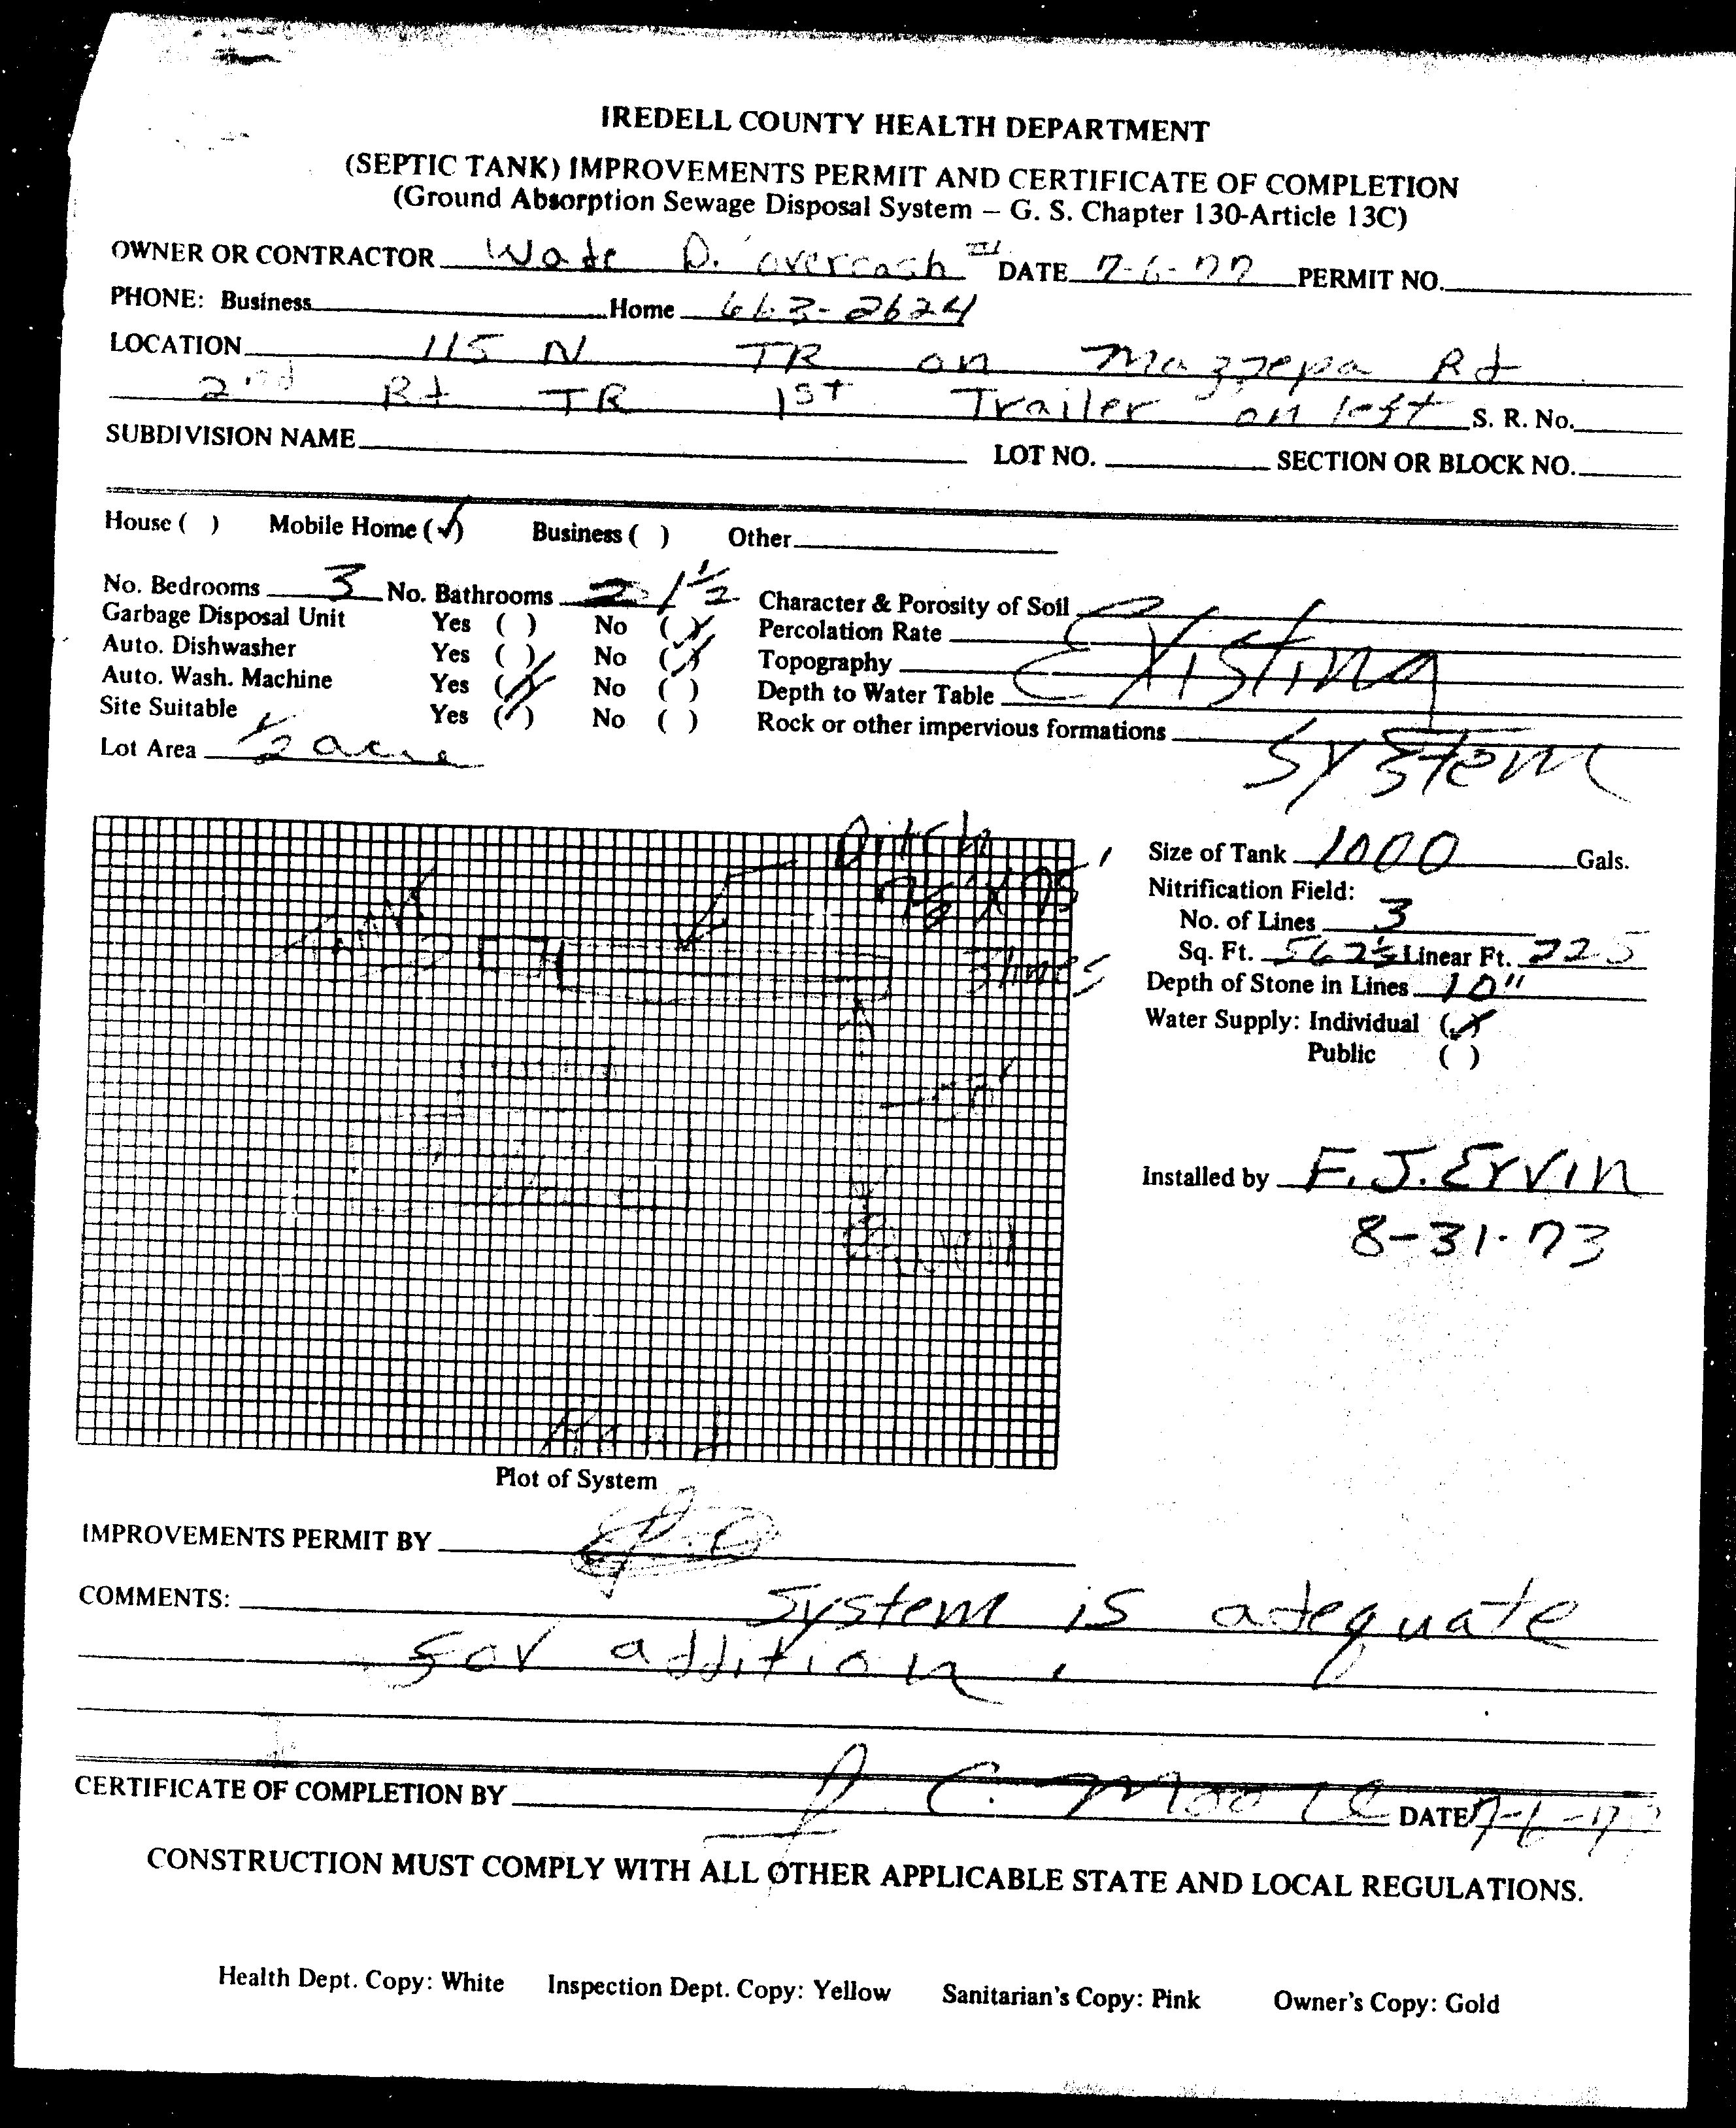 IREDELL COUNTY HEALTH DEPARTMENT
(SEPTIC TANK) IMPROVEMENTS PERMIT AND CERTIFICATE OF COMPLETION
(Ground Absorption Sewage Disposal System – G. S. Chapter 130-Article 13C)
OWNER OR CONTRACTOR Wade D. overcash III DATE 7-6-77 PERMIT NO.
PHONE: Business Home 663-2624
LOCATION 115 N TR on Mazzepa Rd
2nd Rd TR 1st Trailer on left S. R. No.
SUBDIVISION NAME LOT NO. SECTION OR BLOCK NO.
House ( ) Mobile Home (✓) Business ( ) Other
No. Bedrooms 3 No. Bathrooms 1 1/2 Character & Porosity of Soil
Garbage Disposal Unit Yes ( ) No (✓) Percolation Rate Existing
Auto. Dishwasher Yes ( ) No (✓) Topography
Auto. Wash. Machine Yes (✓) No ( ) Depth to Water Table
Site Suitable Yes (✓) No ( ) Rock or other impervious formations System
Lot Area 1/2 acre
Ditch
Size of Tank 1000 Gals.
Nitrification Field:
No. of Lines 3
3 lines
Sq. Ft. 562 1/2 Linear Ft. 225
Depth of Stone in Lines 10"
Water Supply: Individual (✓)
Public ( )
Installed by F. J. Ervin
8-31-73
Plot of System
IMPROVEMENTS PERMIT BY
COMMENTS: System is adequate
for addition.
CERTIFICATE OF COMPLETION BY J. C. Moore DATE 7-6-77
CONSTRUCTION MUST COMPLY WITH ALL OTHER APPLICABLE STATE AND LOCAL REGULATIONS.
Health Dept. Copy: White Inspection Dept. Copy: Yellow Sanitarian's Copy: Pink Owner's Copy: Gold